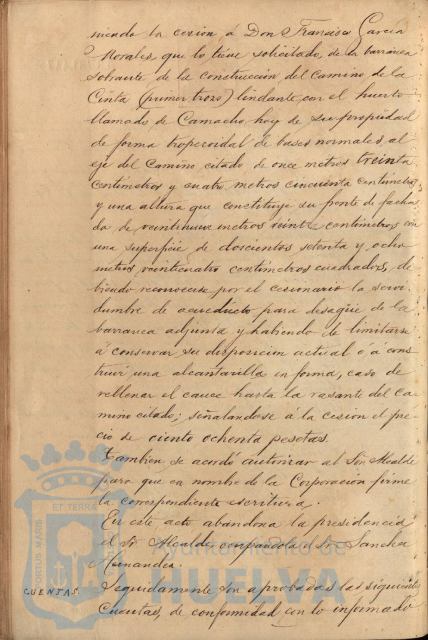 niendo la cesion á Don Francisco Garcia
Morales que lo tiene solicitado, de la barranca
sobrante de la construccion del Camino de la
Cinta (primer trozo) lindante con el huerto
llamado de Camacho hoy de su propiedad
de forma trapezoidal de bases normales al
eje del camino citado de once metros treinta
centimetros y cuatro metros cincuenta centimetros
y una altura que constituye su frente de facha-
da de veintinueve metros veinte centimetros con
una superficie de doscientos setenta y ocho
metros, veinticuatro centimetros cuadrados, de-
biendo reconocerse por el cesionario la servi-
dumbre de acueducto para desagüe de la
barranca adjunta y habiendo de limitarse
á conservar su disposicion actual ó á cons-
truir una alcantarilla en forma, caso de
rellenar el cauce hasta la rasante del ca-
mino citado; señalandose á la cesion el pre-
cio de ciento ochenta pesetas.
Tambien se acordó autorizar al Sor Alcalde
para que en nombre de la Corporacion firme
la correspondiente escritura.
En este acto abandona la presidencia
el Sor Alcalde, ocupandola el Sor Sancha
Hernandez.
CUENTAS.
Seguidamente son aprobadas las siguientes
Cuentas, de conformidad con lo informado
PORTUS MARIS ET TERRÆ
Ayuntamiento de
HUELVA